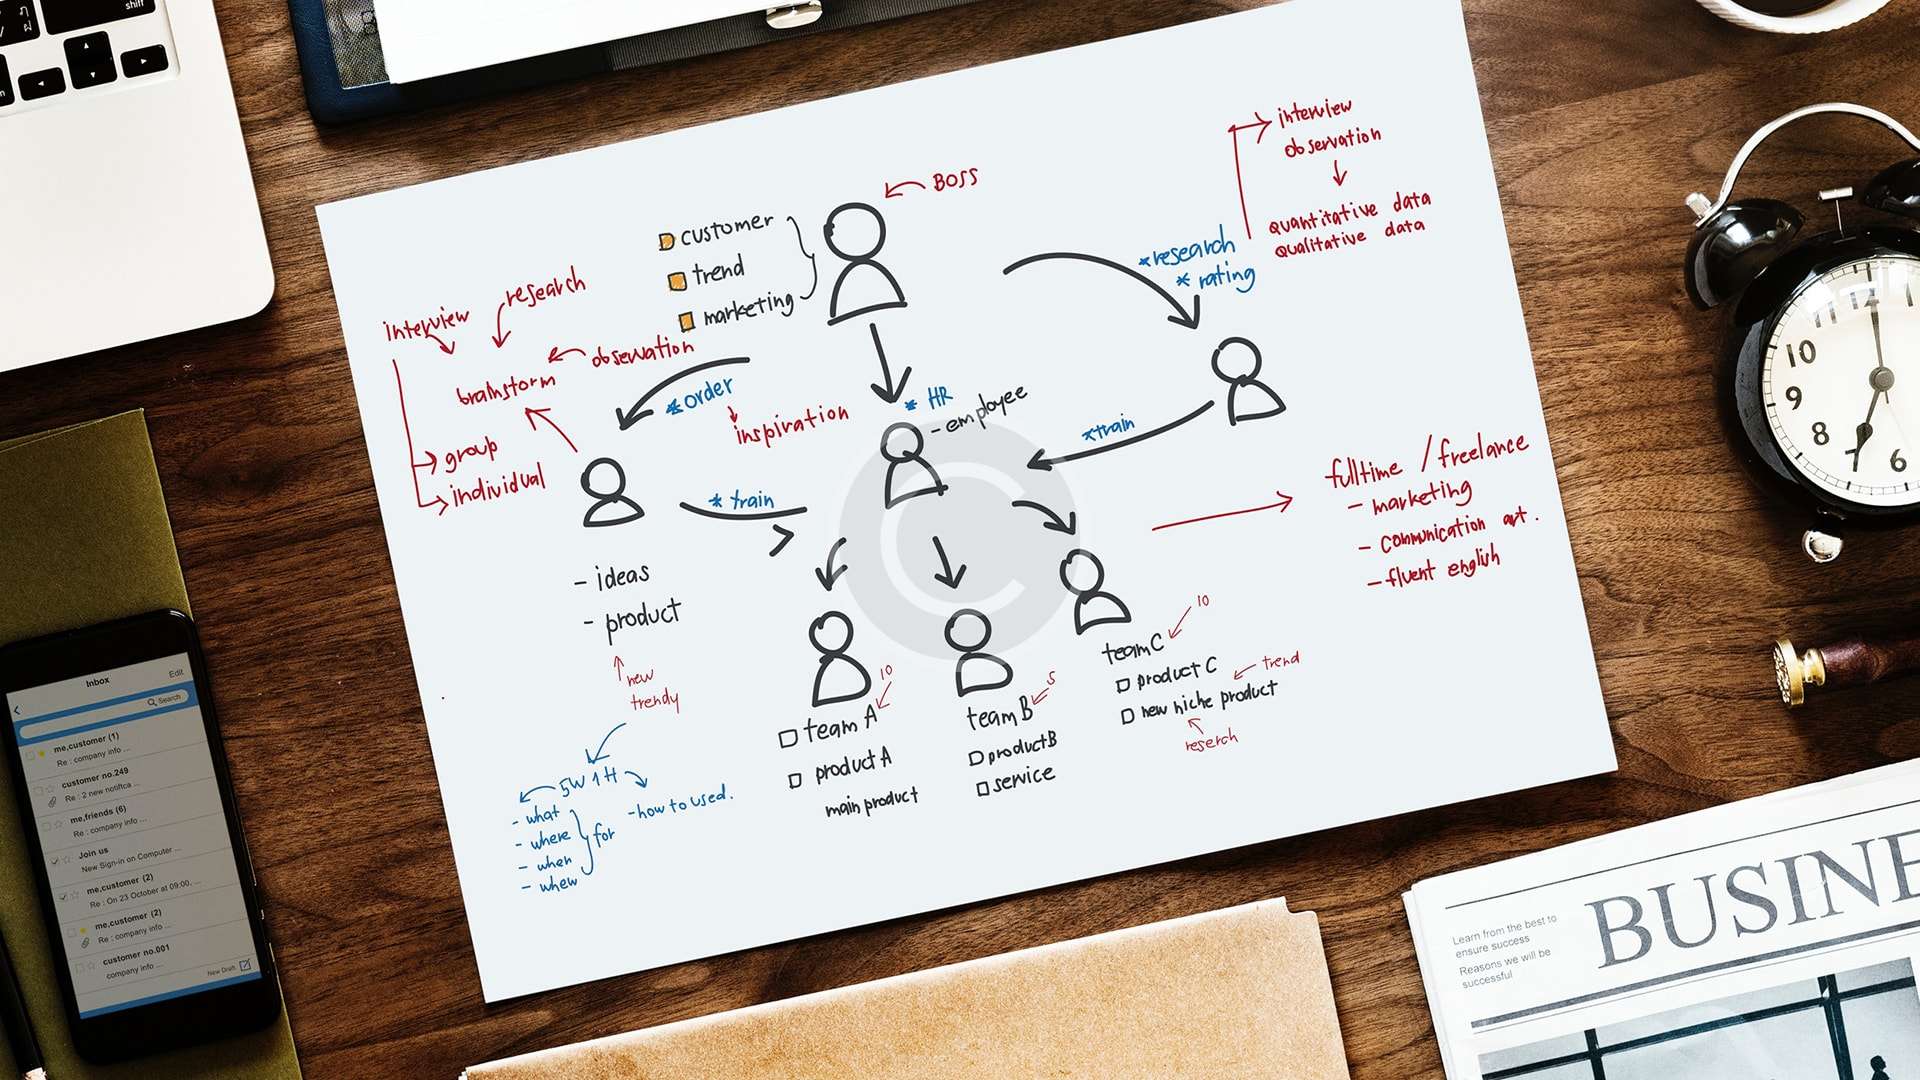 shift
BOSS
customer
trend
marketing
interview
research
observation
brainstorm
group
individual
*order
inspiration
* HR
- employee
*research
* rating
interview
observation
quantitative data
qualitative data
*train
* train
- ideas
- product
new
trendy
5W1H
- what
- where
- when
- whew
for
- how to used.
team A
10
product A
main product
team B
5
product B
service
team C
10
product C
trend
new niche product
reserch
fulltime / freelance
- marketing
- communication art.
- fluent english
C
Inbox
Edit
Search
me,customer (1)
Re : company info ...
customer no.249
Re : 2 new notiftca ...
me,friends (6)
Re : company info ...
Join us
New Sign-in on Computer ...
me,customer (2)
Re : On 23 October at 09:00, ...
me,customer (2)
Re : company info ...
customer no.001
company info ...
New Draft
11
12
10
9
8
6
BUSINE
Learn from the best to
ensure success
Reasons we will be
successful